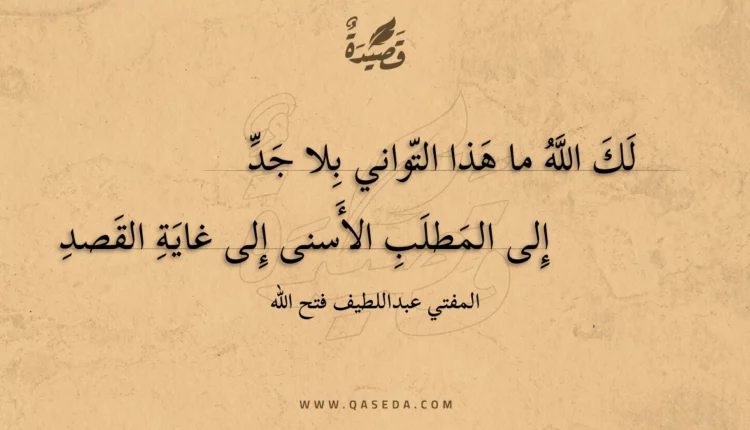 قَصِيدَةٌ
لَكَ اللَّهُ ما هَذا التّواني بِلا جَدِّ
إِلى المَطلَبِ الأَسنى إِلى غايَةِ القَصدِ
المفتي عبداللطيف فتح الله
WWW.QASEDA.COM